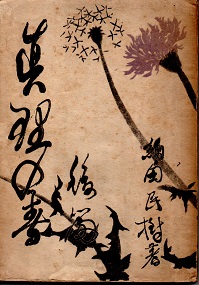 真理の春
後篇
細田民樹著